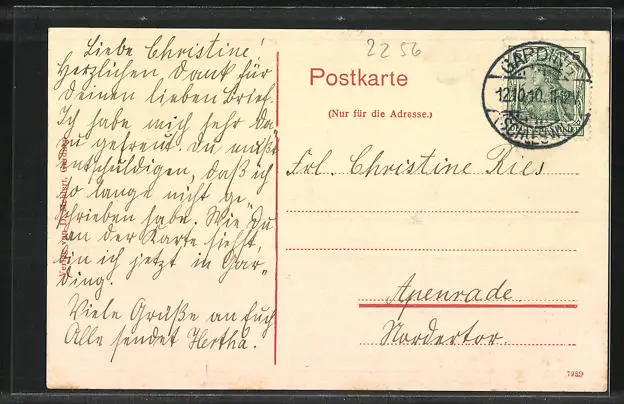 Liebe Christine!
Herzlichen Dank für
Deinen lieben Brief.
Ich habe mich sehr da=
zu gefreut. Du mußt
entschuldigen, daß ich
so lange nicht ge=
schrieben habe. Wie Du
an der Karte siehst,
bin ich jetzt in Gar=
ding.
Viele Grüße an Euch
Alle sendet Hertha.
2256
Postkarte
(Nur für die Adresse.)
GARDING
12.10.10. 11-12
(SCHLESWIG)
Frl. Christine Ries
Apenrade.
Nordertor.
Verlag von
7989